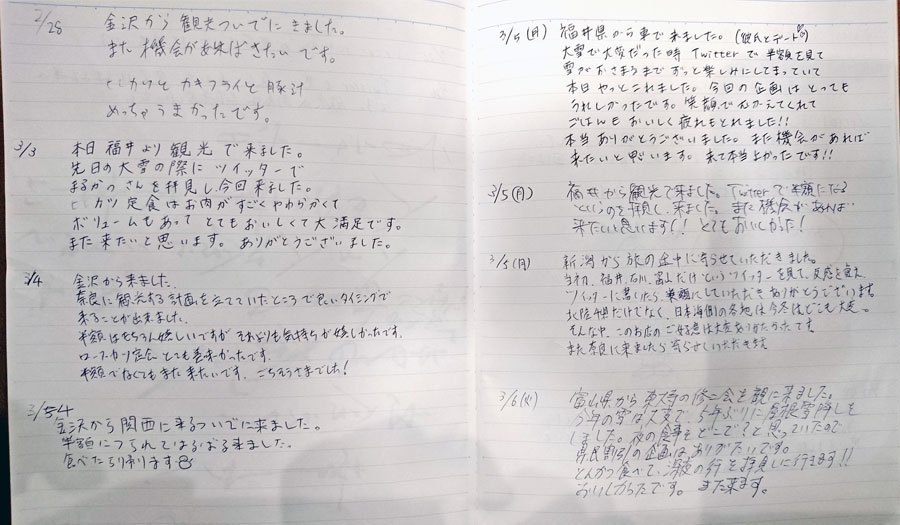 2/28 金沢から観光ついでにきました。
また機会があればきたいです。
ヒレカツとカキフライと豚汁
めっちゃうまかったです。
3/3 本日福井より観光で来ました。
先日の大雪の際にツイッターで
まるかつさんを拝見し今回来ました。
ヒレカツ定食はお肉がすごくやわらかくて
ボリュームもあってとてもおいしくて大満足です。
また来たいと思います。ありがとうございました。
3/4 金沢から来ました。
奈良に観光する計画を立てていたところで良いタイミングで
来ることが出来ました。
半額はもちろん嬉しいですがそれよりも気持ちが嬉しかったです。
ロースカツ定食とても美味かったです。
半額でなくてもまた来たいです。ごちそうさまでした!
金沢から関西に来るついでに来ました。
半額につられてはるばる来ました。
食べたら帰ります
3/5(月) 福井県から車で来ました。(彼氏とデート)
大雪で大変だった時Twitterで半額を見て
雪がおさまるまでずっと楽しみにしてまっていて
本日やっとこれました。今回の企画はとっても
うれしかったです。笑顔でむかえてくれて
ごはんもおいしく疲れもとれました!!
本当ありがとうございました。また機会があれば
来たいと思います。来て本当よかったです!!
3/5(月) 福井から観光で来ました。Twitterで半額になる
というのを拝見し、来ました。また機会があれば
来たいと思います!!とてもおいしかった!
3/5(月) 新潟から旅の途中に寄らせていただきました。
当初、福井、石川、富山だけというツイッターを見て、反感を覚え
ツイッターに書いたら、半額にしていただきありがとうございます。
北陸4県だけでなく、日本海側の各地は今冬はどこも大変。
そんな中、このお店のご好意は大変ありがたかったです
また奈良に来ましたら寄らせていただきます
3/6(火) 富山県から東大寺の修二会を観に来ました。
今年の雪は大変で、5年ぶりに屋根雪降しを
しました。夜の食事をどこでと思っていたので
県民割引の企画はありがたいです。
とんかつ食べて、深夜の行を拝見しに行きます!!
おいしかったです。また来ます。